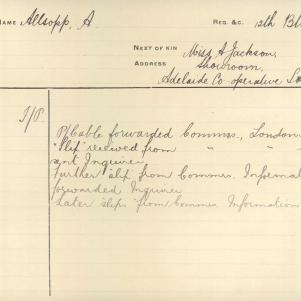 NAME Allsopp, A. REG. &C. 12th Bt
NEXT OF KIN Miss A Jackson,
ADDRESS Showroom,
Adelaide Co-operative
P/Cable forwarded Commrs., London
"Slip" received from " "
sent Inquirer
Further "slip" from Commrs. Informat
forwarded Inquirer
Later "slip" from Commrs Information